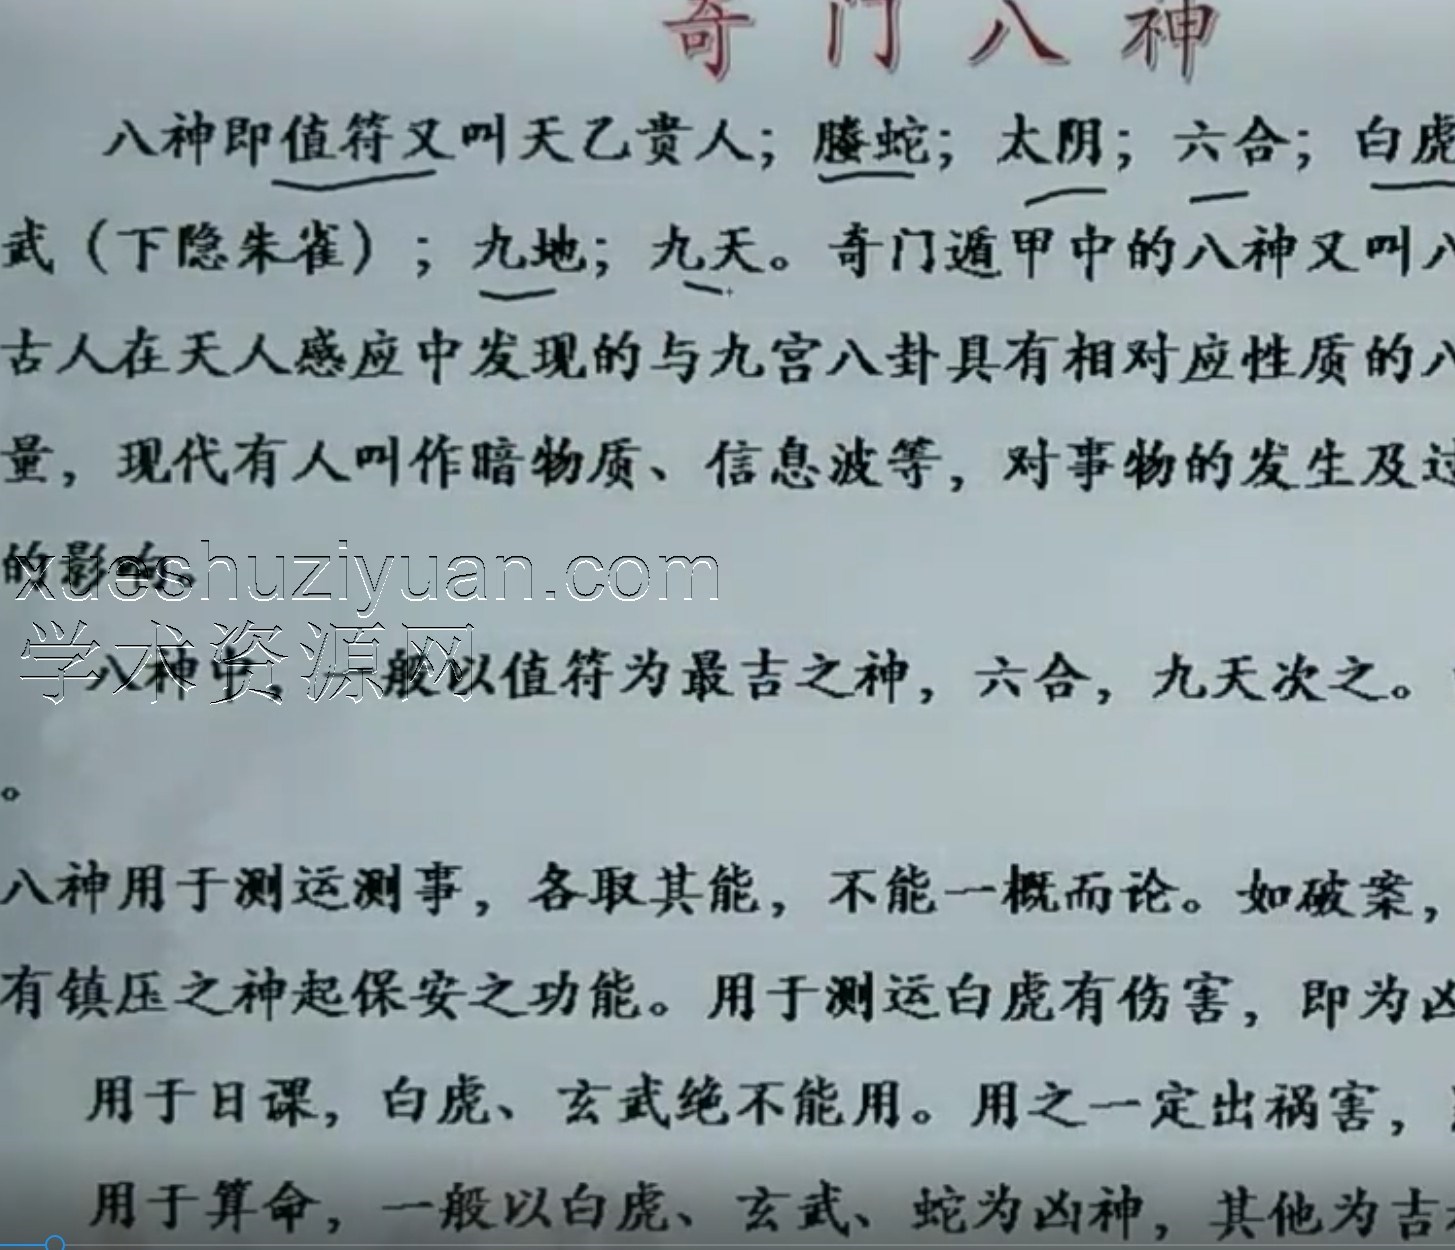 奇门八神
八神即值符又叫天乙贵人；螣蛇；太阴；六合；白虎
武（下隐朱雀）；九地；九天。奇门遁甲中的八神又叫八
古人在天人感应中发现的与九宫八卦具有相对应性质的八
量，现代有人叫作暗物质、信息波等，对事物的发生及过
的影响。
xueshuziyuan.com
学术资源网
八神中，一般以值符为最吉之神，六合，九天次之。
。
八神用于测运测事，各取其能，不能一概而论。如破案，
有镇压之神起保安之功能。用于测运白虎有伤害，即为凶
用于日课，白虎、玄武绝不能用。用之一定出祸害，
用于算命，一般以白虎、玄武、蛇为凶神，其他为吉